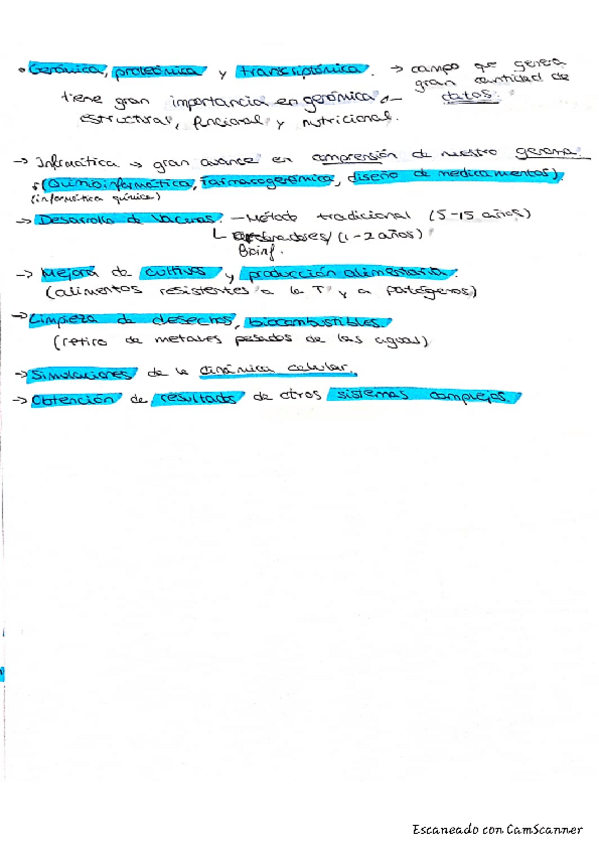 • Genómica, proteómica y transcriptómica. → campo que genera gran cantidad de datos.
tiene gran importancia en genómica
estructural, funcional y nutricional.
→ Informática → gran avance en comprensión de nuestro genoma
(Quimioinformática, farmacogenómica, diseño de medicamentos).
(informática química)
→ Desarrollo de vacunas. — Método tradicional (5-15 años)
(1-2 años)
Bioinf.
→ Mejora de cultivos y producción alimentaria.
(alimentos resistentes a la T y a patógenos)
→ Limpieza de desechos, biocombustibles.
(retiro de metales pesados de las aguas)
→ Simulaciones de la dinámica celular.
→ Obtención de resultados de otros sistemas complejos.
Escaneado con CamScanner